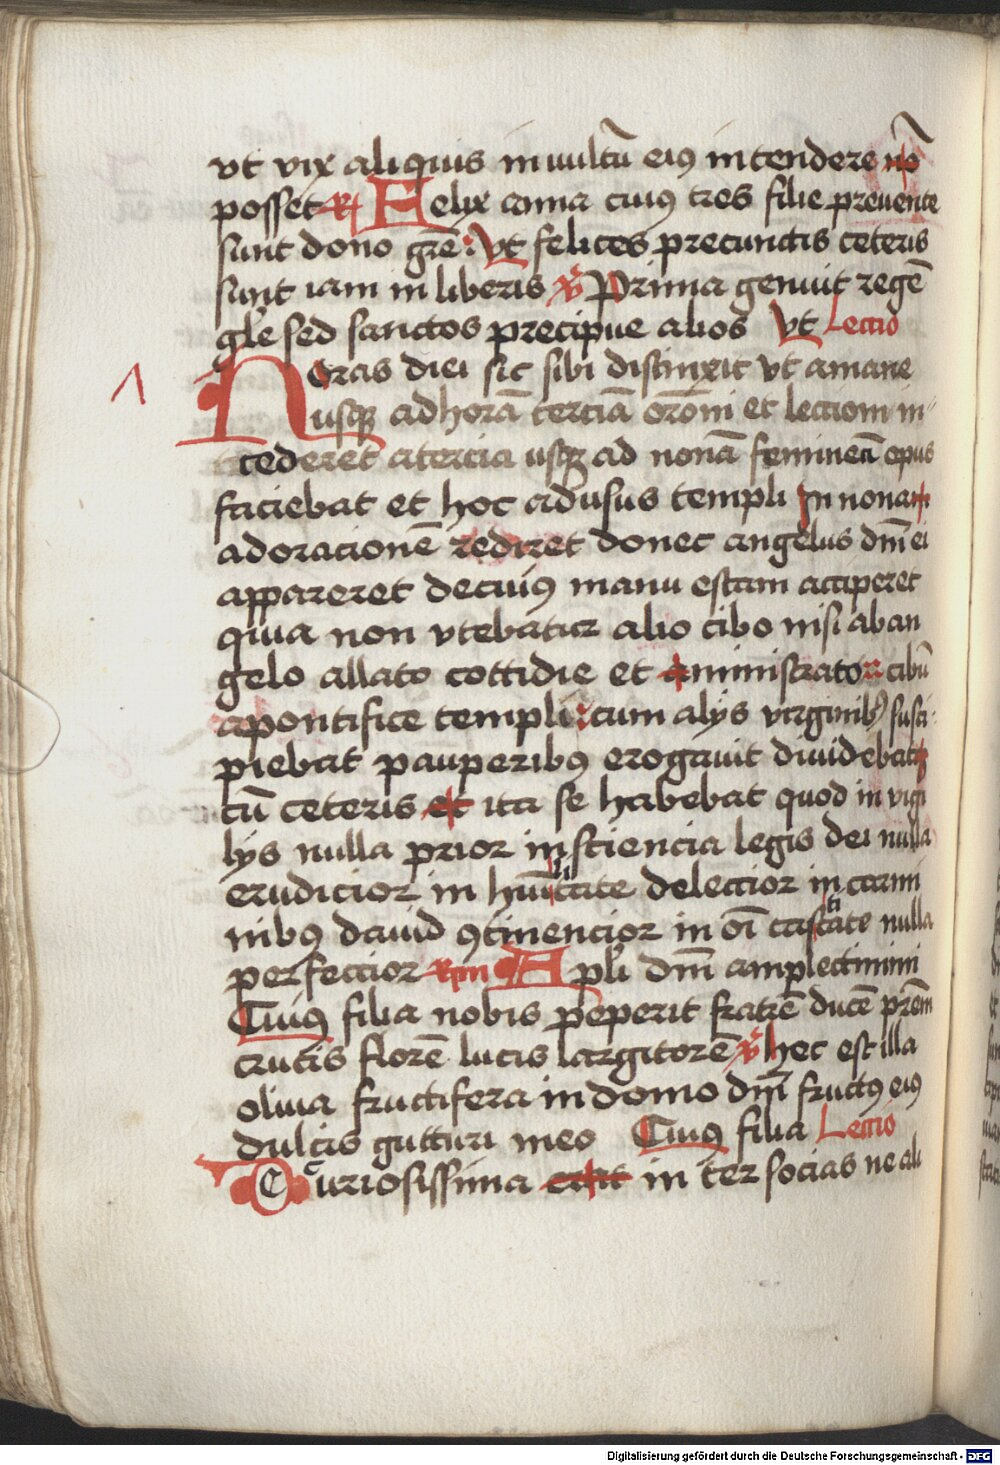 vt vix aliquis in uultū eiꝰ intendere nō
posset R Felix anna cuiꝰ tres filie preuente
sunt dono grē : Vt felices precunctis ceteris
sunt iam in liberis V Prima genuit regē
gle sed sanctos precipue alios Vt Lectio
Horas diei sic sibi distinxit vt amane
usqꝫ ad horā terciā orōni et lectioni in
cederet atercia usqꝫ ad nonā femineū opus
faciebat et hoc adusus templi In nona
adoracionē rediret donec angelus dnī ei
appareret decuiꝰ manu escam acciperet
quia non vtebatur alio cibo nisi aban
gelo allato cottidie et aministrato : cibū
apontifice templi : cum alijs virginibꝰ susci
piebat pauperibꝰ erogauit diuidebat
cū ceteris et ita se habebat quod in vigi
lijs nulla prior in sciencia legis dei nulla
erudicior in hūilitate deleccior in carmi
nibꝰ dauid ꝯtinencior in oī castitate nulla
perfeccior Rm Apli dnī amplectimini
Cuiꝰ filia nobis peperit fratrē ducē prēm
crucis florē lucis largitorē V hec est illa
oliua fructifera in domo dnī fructꝰ eiꝰ
dulcis gutturi meo Cuiꝰ filia Lectio
Curiosissima erat in iter socias ne ali
Digitalisierung gefördert durch die Deutsche Forschungsgemeinschaft - DFG